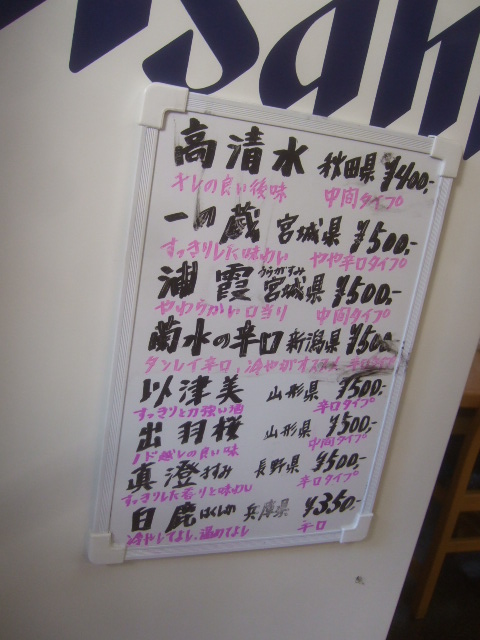 Asahi
高清水 秋田県 ¥400,-
キレの良い後味 中間タイプ
一の蔵 宮城県 ¥500,-
すっきりした味わい やや辛口タイプ
浦霞 うらがすみ 宮城県 ¥500,-
やわらかい口当り 中間タイプ
菊水の辛口 新潟県 ¥500,-
タンレイ辛口、冷やがオススメ 辛口タイプ
以津美 山形県 ¥500,-
すっきりと力強い酒 辛口タイプ
出羽桜 山形県 ¥500,-
ノド越しの良い味 中間タイプ
真澄 ますみ 長野県 ¥500,-
すっきりした香りと味わい 辛口タイプ
白鹿 はくしか 兵庫県 ¥350,-
冷やしてよし、温めてよし 辛口